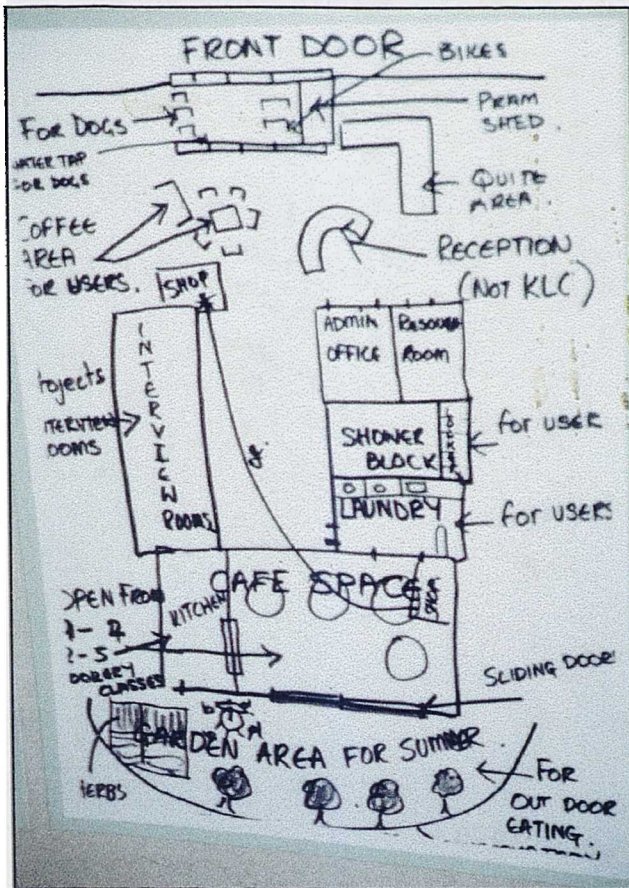 FRONT DOOR
BIKES
FOR DOGS
PRAM
SHED.
WATER TAP
FOR DOGS
QUITE
AREA.
COFFEE
AREA
FOR USERS.
RECEPTION
(NOT KLC)
SHOP
ADMIN
OFFICE
ROOM
INTERVIEW
ROOMS
rojects
NTERVIEW
OOMS
SHOWER
BLOCK
LOCKERS
for USER
LAUNDRY
for USERS
CAFE SPACE
KITCHEN
OPEN FROM
2-5
CLASSES
SLIDING DOOR
GARDEN AREA FOR SUMMER.
HERBS
FOR
OUT DOOR
EATING.